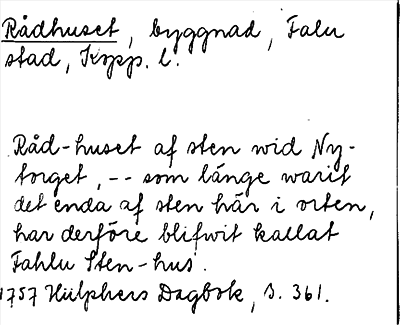 Rådhuset, byggnad, Falu
stad, Kopp. l.
Råd-huset af sten wid Ny-
torget, -- som länge warit
det enda af sten här i orten,
har derföre blifwit kallat
Fahlu Sten-hus.
1757 Hülphers Dagbok, s. 361.